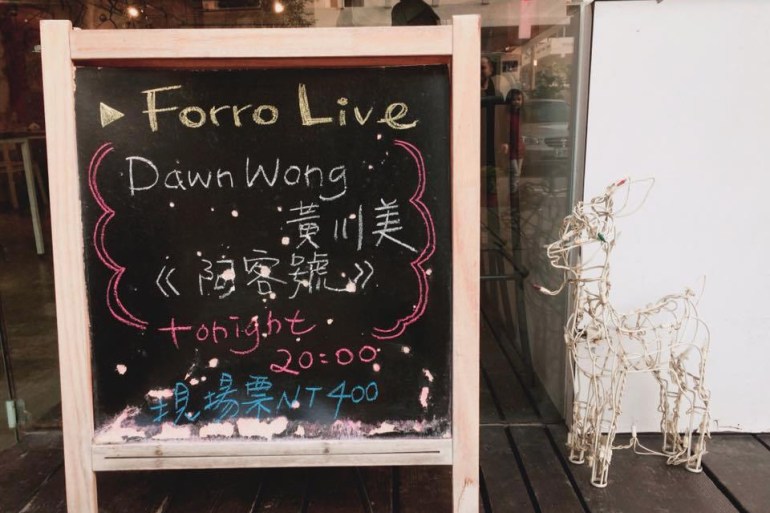 ▶ Forro Live
Dawn Wong
黃川美
《阿客號》
tonight
20:00
現場票NT400